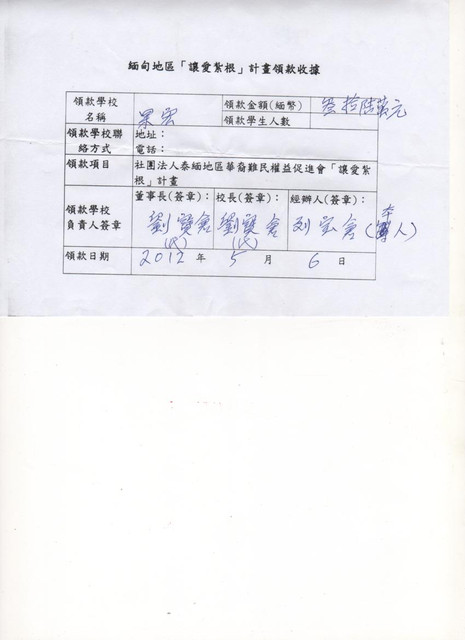 緬甸地區「讓愛紮根」計畫領款收據
領款學校名稱 果宏 領款金額(緬幣) 拾陸萬元
領款學生人數
領款學校聯絡方式 地址：
電話：
領款項目 社團法人泰緬地區華裔難民權益促進會「讓愛紮根」計畫
領款學校負責人簽章 董事長(簽章)： 校長(簽章)： 經辦人(簽章)：
劉賢 (代) 劉賢 (代) (本人)
領款日期 2012 年 5 月 6 日